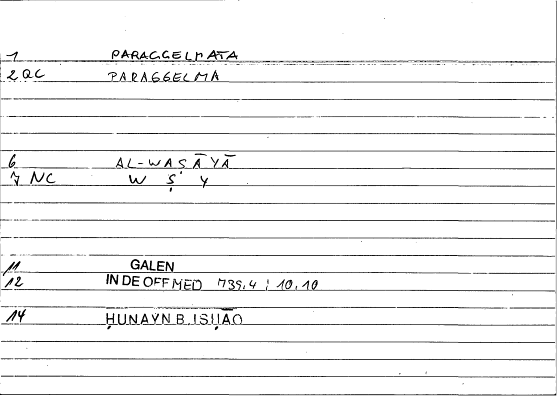 1 PARAGGELMATA
2 QC PARAGGELMA
6 AL-WAṢĀYĀ
7 NC W Ṣ Y
11 GALEN
12 IN DE OFF MED 739.4 ; 10.10
14 ḤUNAYN B. ISḤĀQ